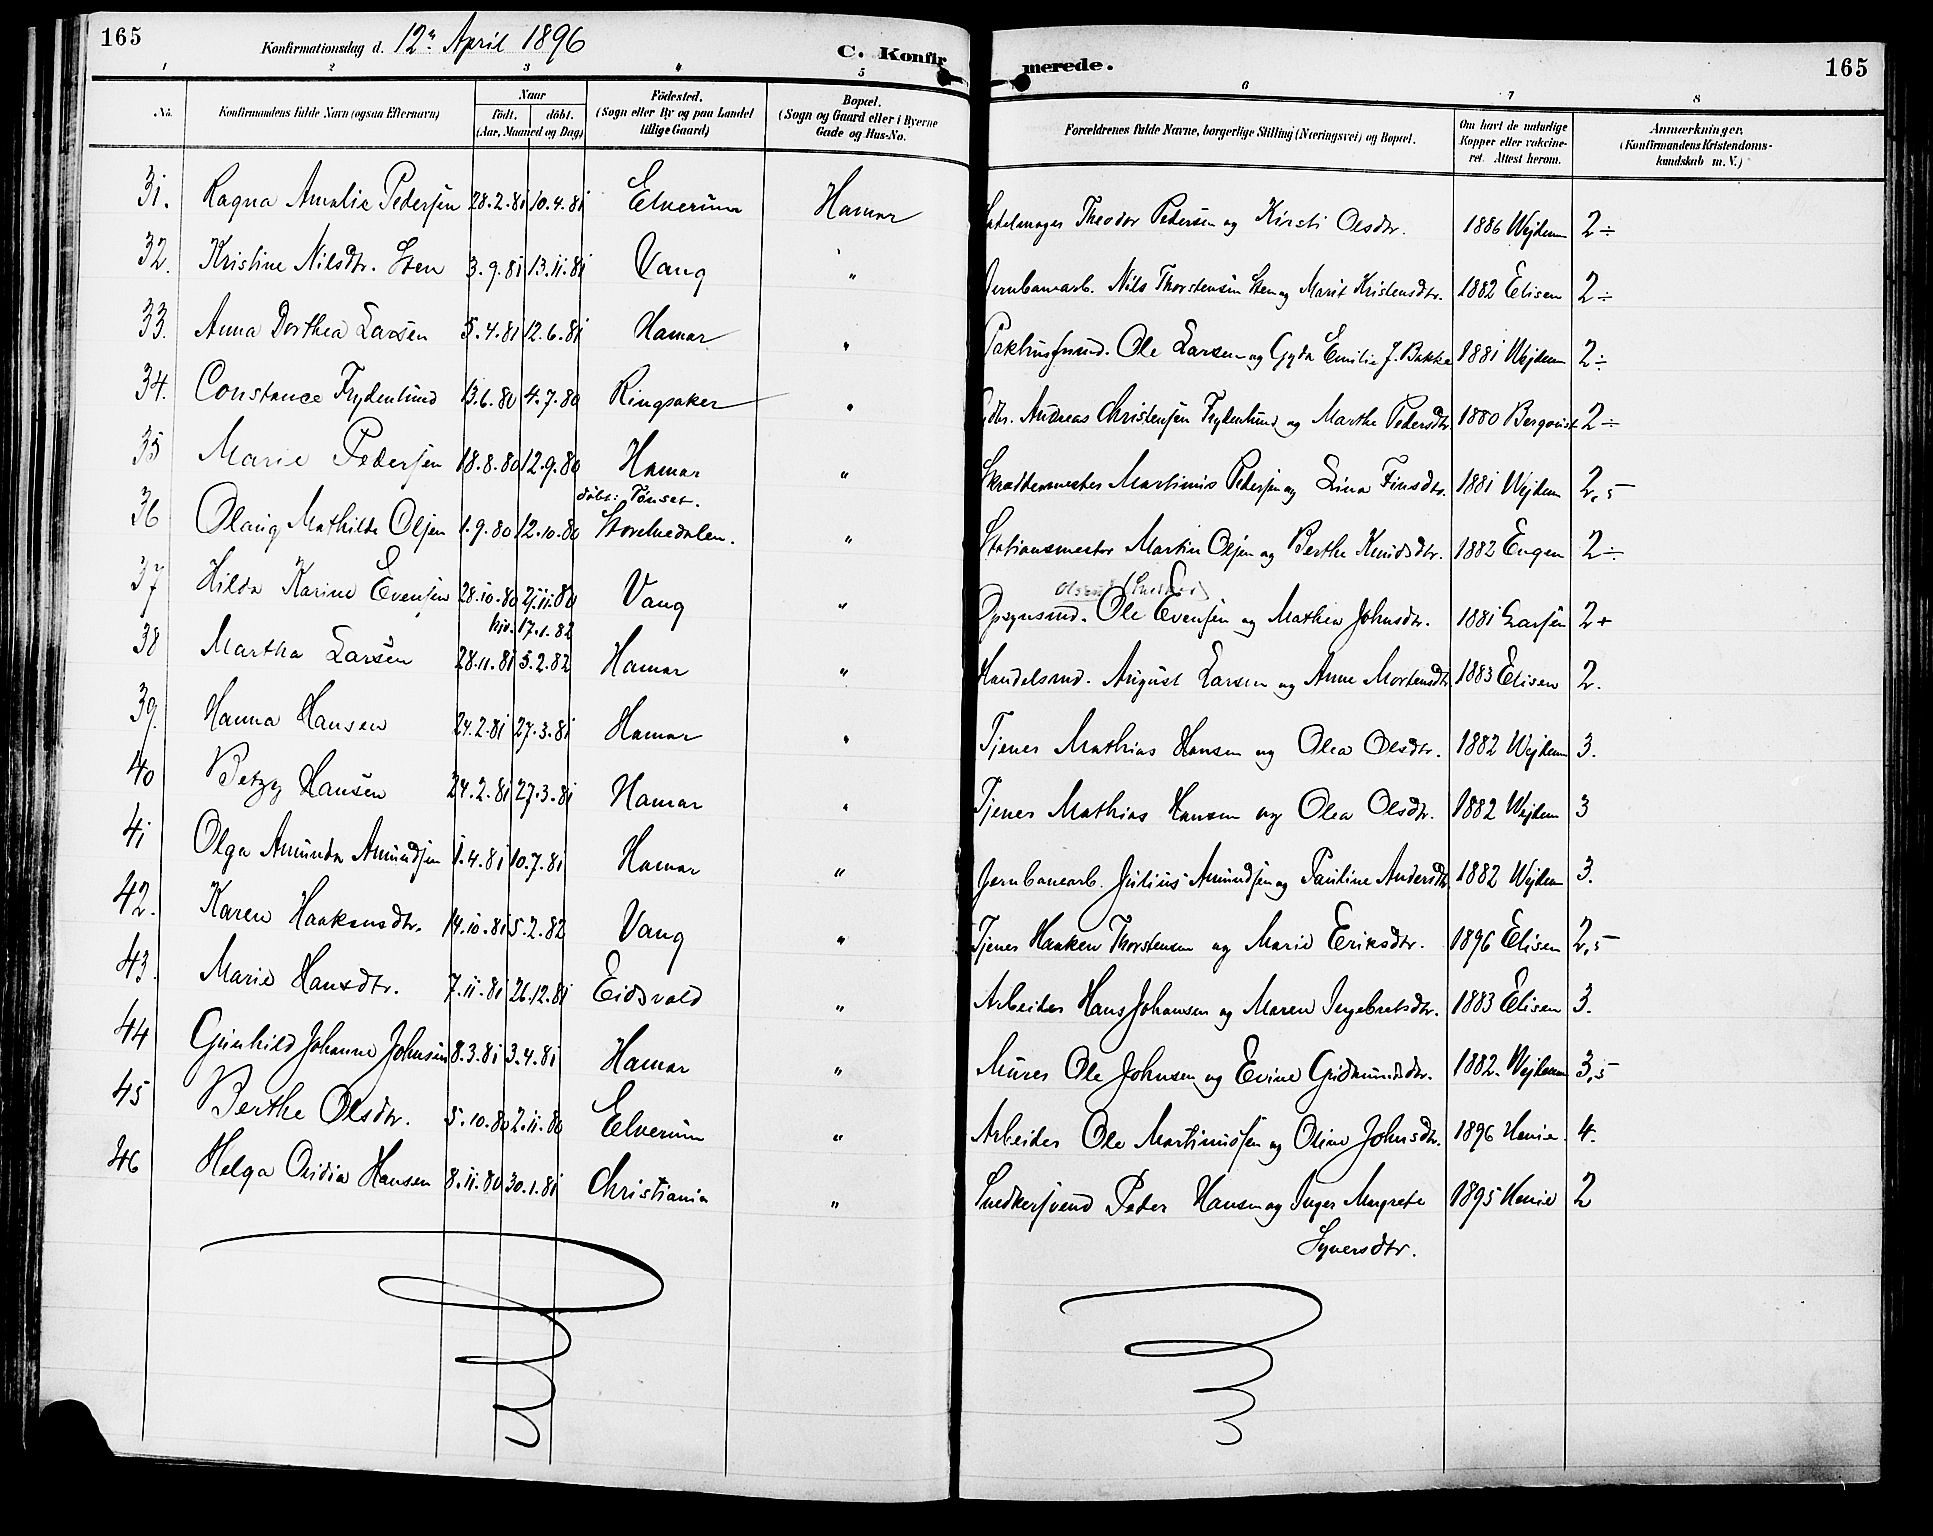 165
Konfirmationsdag d. 12te April 1896
C. Konfirmerede.
165
1 2 3 4 5 6 7 8
No.
Konfirmandens fulde Navn (ogsaa Efternavn)
Naar
født. døbt.
(Aar, Maaned og Dag)
Fødested.
(Sogn eller By og paa Landet tillige Gaard)
Bopæl.
(Sogn og Gaard eller i Byerne Gade og Hus-No.
Forældrenes fulde Navne, borgerlige Stilling (Næringsvei) og Bopæl.
Om havt de naturlige Kopper eller vakcineret. Attest herom.
Anmærkninger.
(Konfirmandens Kristendomskundskab m. V.)
31. Ragna Amalie Pedersen 28.2.81 10.4.81 Elverum Hamar Theodor Pedersen og Kirsti Olsdtr. 1886 Wejdem 2÷
32. Kristine Nilsdtr. Sten 3.9.81 13.11.81 Vang " Jernbanearb. Nils Thorstensen Sten og Marit Kristensdtr. 1882 Elisen 2÷
33. Anna Dorthea Larsen 5.4.81 12.6.81 Hamar " Pakhusformd. Ole Larsen og Gyda Emilie J. Bakke 1881 Wejdem 2÷
34. Constance Frydenlund 13.6.80 4.7.80 Ringsaker " Andreas Christensen Frydenlund og Marthe Pedersdtr. 1880 Berqvist 2÷
35 Marie Pedersen 18.8.80 12.9.80 Hamar " Skræddermester Martinus Pedersen og Lina Finsdtr. 1881 Wejdem 2,5
36 Olaug Mathilde Olsen 1.9.80 12.10.80 døbt: Tønset. Storelvedalen. " Stationsmester Martin Olsen og Berthe Knudsdtr. 1882 Engen 2÷
37 Hilda Karine Evensen 28.10.80 21.11.80 Vang " Opsynsmd. Ole Evensen og Mathea Johnsdtr. 1881 Larsen 2+
38 Martha Larsen 28.11.81 hjd. 17.1.82 5.2.82 Hamar " Handelsmd. August Larsen og Anne Mortensdtr. 1883 Elisen 2.
39. Hanna Hansen 24.2.81 27.3.81 Hamar " Tjener Mathias Hansen og Olea Olsdtr. 1882 Wejdem 3.
40 Betzy Hansen 24.2.81 27.3.81 Hamar " Tjener Mathias Hansen og Olea Olsdtr. 1882 Wejdem 3
41 Olga Amunda Amundsen 1.4.81 10.7.81 Hamar " Jernbanearb. Julius Amundsen og Pauline Andersdtr. 1882 Wejdem 3.
42. Karen Haakensdtr. 14.10.81 5.2.82 Vang " Tjener Haaken Thorstensen og Marie Eriksdtr. 1896 Elisen 2,5
43. Marie Hansdtr. 7.11.81 26.12.81 Eidsvold " Arbeider Hans Johansen og Maren Ingebretsdtr. 1883 Elisen 3.
44 Gunhild Johanne Johnsen 8.3.81 3.4.81 Hamar " Murer Ole Johnsen og Evine Gudmundsdtr. 1882. Wejdem 3,5
45 Berthe Olsdtr. 5.10.80 2.11.80 Elverum " Arbeider Ole Martinussen og Oline Johnsdtr. 1896 Henie. 4.
46 Helga Ovidia Hansen 8.11.80 30.1.81 Christiania " Snedkersvend Peder Hansen og Inger Margrete
Syversdtr. 1895 Henie 2